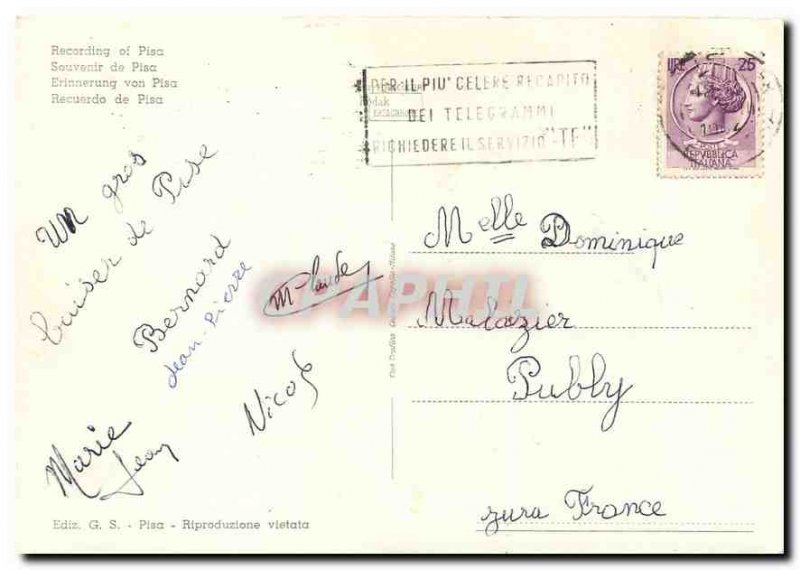 Recording of Pisa
Souvenir de Pisa
Erinnerung von Pisa
Recuerdo de Pisa
PER IL PIU' CELERE RECAPITO
DEI TELEGRAMMI
RICHIEDERE IL SERVIZIO "TF"
LIRE 25
REPVBBLICA
ITALIANA
Un gros
baiser de Pise
Bernard
Jean-Pierre
M Claude
Nicole
Marie
Jean
Melle Dominique
Malazier
Publy
Jura France
CPAPHIL
Ediz. G. S. - Pisa - Riproduzione vietata